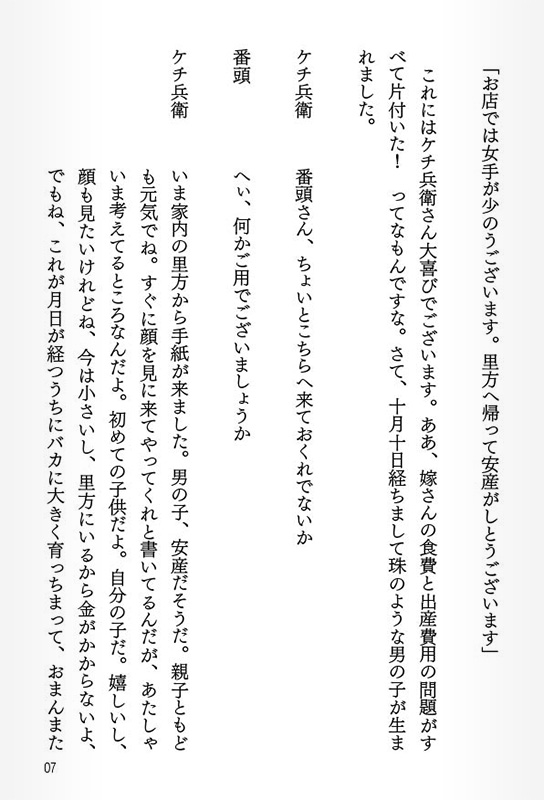 「お店では女手が少のうございます。里方へ帰って安産がしとうございます」
これにはケチ兵衛さん大喜びでございます。ああ、嫁さんの食費と出産費用の問題がす
べて片付いた!　ってなもんですな。さて、十月十日経ちまして珠のような男の子が生ま
れました。
ケチ兵衛　番頭さん、ちょいとこちらへ来ておくれでないか
番頭　へぃ、何かご用でございましょうか
ケチ兵衛　いま家内の里方から手紙が来ました。男の子、安産だそうだ。親子ともど
も元気でね。すぐに顔を見に来てやってくれと書いてるんだが、あたしゃ
いま考えてるところなんだよ。初めての子供だよ。自分の子だ。嬉しいし、
顔も見たいけれどね、今は小さいし、里方にいるから金がかからないよ、
でもね、これが月日が経つうちにバカに大きく育っちまって、おまんまた
07